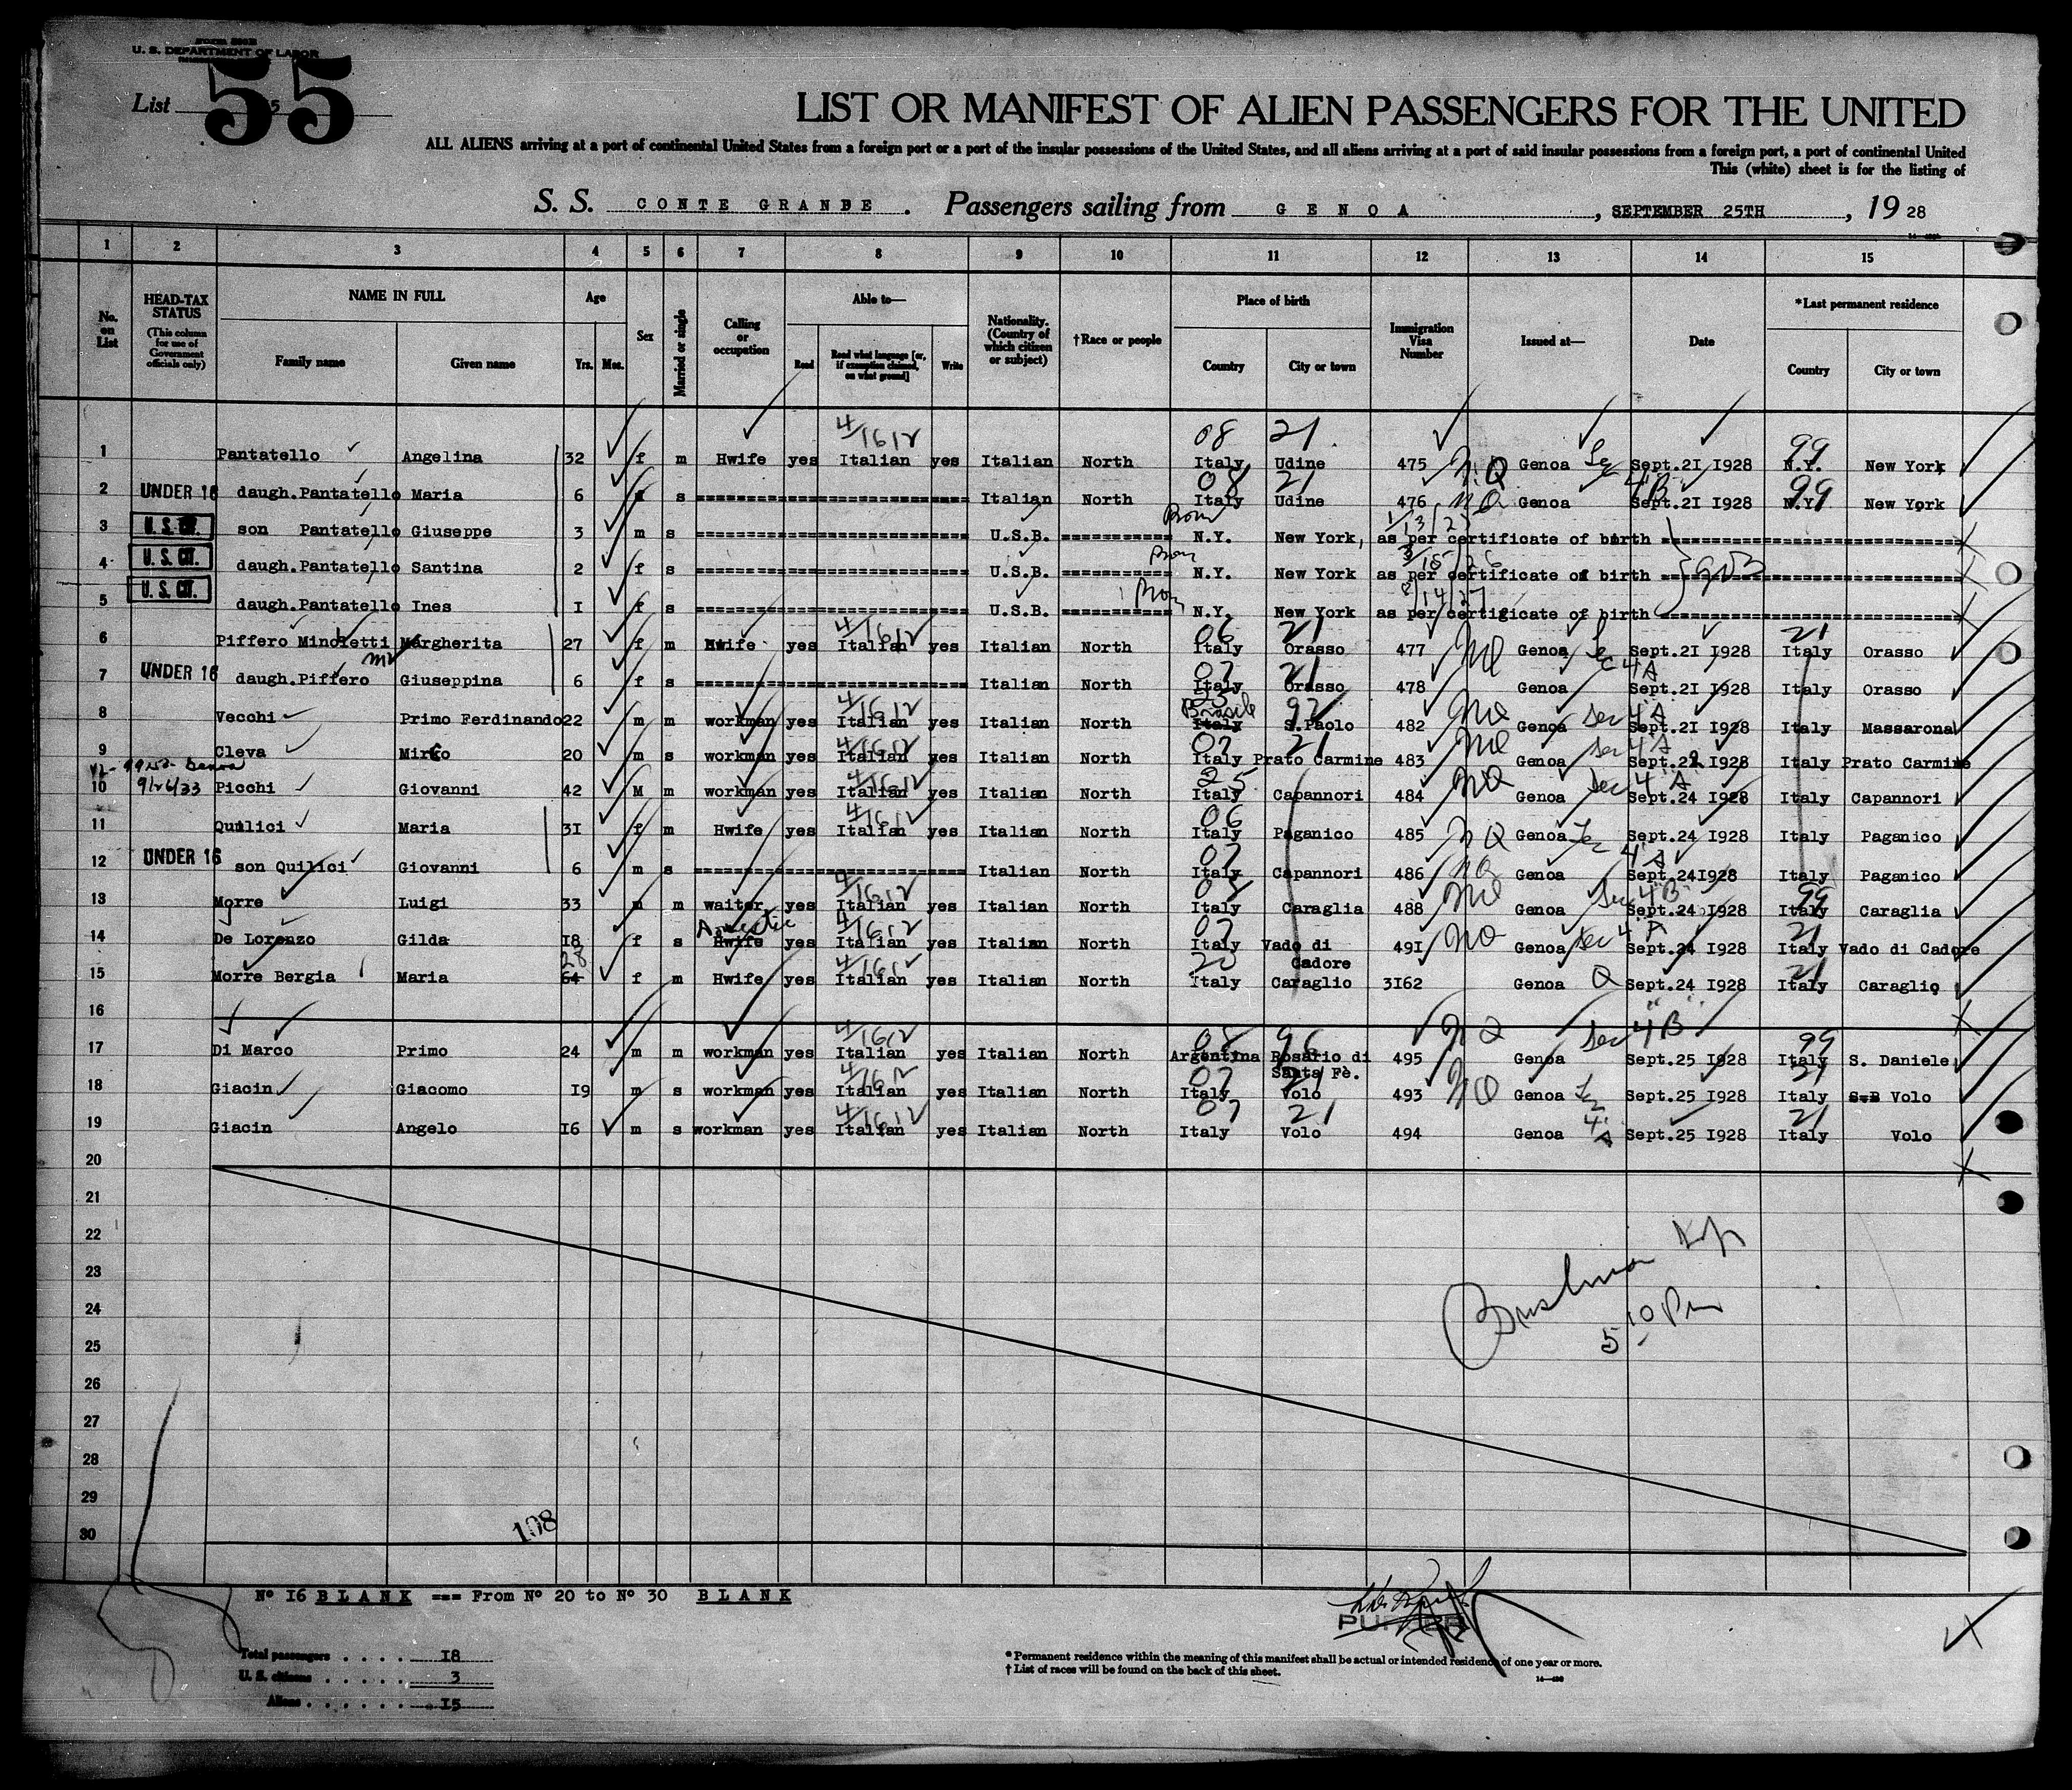 Form 500B
U. S. DEPARTMENT OF LABOR
List 5
55
LIST OR MANIFEST OF ALIEN PASSENGERS FOR THE UNITED
ALL ALIENS arriving at a port of continental United States from a foreign port or a port of the insular possessions of the United States, and all aliens arriving at a port of said insular possessions from a foreign port, a port of continental United
This (white) sheet is for the listing of
S. S. CONTE GRANDE . Passengers sailing from GENOA , SEPTEMBER 25TH , 19 28
1 2 3 4 5 6 7 8 9 10 11 12 13 14 15
No. on List
HEAD-TAX STATUS (This column for use of Government officials only)
NAME IN FULL Family name Given name
Age Yrs. Mos.
Sex
Married or single
Calling or occupation
Able to— Read Read what language [or, if exemption claimed, on what ground] Write
Nationality. (Country of which citizen or subject)
†Race or people
Place of birth Country City or town
Immigration Visa Number
Issued at—
Date
*Last permanent residence Country City or town
1 Pantatello Angelina 32 f m Hwife yes Italian yes Italian North 08 Italy 21 Udine 475 N.Q Genoa Sept.2I I928 99 N.Y. New York
2 UNDER 16 daugh.Pantatello Maria 6 f s Italian North 08 Italy 21 Udine 476 NQ Genoa 4B Sept.2I I928 99 N.Y. New York
3 U.S. CIT. son Pantatello Giuseppe 3 m s U.S.B. N.Y. New York, as per certificate of birth
4 U.S. CIT. daugh.Pantatello Santina 2 f s U.S.B. N.Y. New York as per certificate of birth
5 U.S. CIT. daugh.Pantatello Ines I f s U.S.B. N.Y. New York as per certigicate of birth
6 Piffero Minoletti Margherita 27 f m Hwife yes Italian yes Italian North 06 Italy 21 Orasso 477 Genoa Sept.2I I928 21 Italy Orasso
7 UNDER 16 daugh.Piffero Giuseppina 6 f s Italian North 07 Italy 21 Orasso 478 Genoa 4A Sept.2I I928 Italy Orasso
8 Vecchi Primo Ferdinando 22 m m workman yes Italian yes Italian North Brasile Italy 92 S.Paolo 482 Genoa Sec 4A Sept.2I I928 Italy Massarona
9 Cleva Mirco 20 m s workman yes Italian yes Italian North 07 Italy 21 Prato Carmine 483 Genoa Sec 4A Sept.22 I928 Italy Prato Carmine
10 9/26/33 Picchi Giovanni 42 M m workman yes Italian yes Italian North 25 Italy Capannori 484 NQ Genoa Sec 4 A Sept.24 I928 Italy Capannori
11 Quilici Maria 3I f m Hwife yes Italian yes Italian North 06 Italy Paganico 485 NQ Genoa Sept.24 I928 Italy Paganico
12 UNDER 16 son Quilici Giovanni 6 m s Italian North 07 Italy Capannori 486 NQ Genoa 4A Sept.24I928 Italy Paganico
13 Morre Luigi 33 m m waiter yes Italian yes Italian North Italy Caraglia 488 Genoa Sec 4B Sept.24 I928 99 Italy Caraglia
14 De Lorenzo Gilda I8 f s Hwife yes Italian yes Italian North 07 Italy Vado di Cadore 49I NQ Genoa Sec 4 A Sept.24 I928 21 Italy Vado di Cadore
15 Morre Bergia Maria 28 64 f m Hwife yes Italian yes Italian North 20 Italy Caraglio 3I62 Genoa Q Sept.24 I928 21 Italy Caraglio
16
17 Di Marco Primo 24 m m workman yes Italian yes Italian North 08 Argentina 96 Rosario di Santa Fè. 495 NQ Genoa Sec 4B Sept.25 I928 99 Italy S. Daniele
18 Giacin Giacomo I9 m s workman yes Italian yes Italian North 07 Italy 21 Volo 493 NQ Genoa Sept.25 I928 21 Italy Volo
19 Giacin Angelo I6 m s workman yes Italian yes Italian North 07 Italy 21 Volo 494 Genoa 4A Sept.25 I928 21 Italy Volo
20
21
22
23
24
25
26
27
28
29
30
5 10 Pm
108
Nº I6 BLANK === From Nº 20 to Nº 30 BLANK
PURSER
Total passengers . . . . I8
U. S. citizens . . . . . 3
Aliens . . . . . . I5
* Permanent residence within the meaning of this manifest shall be actual or intended residence of one year or more.
† List of races will be found on the back of this sheet.